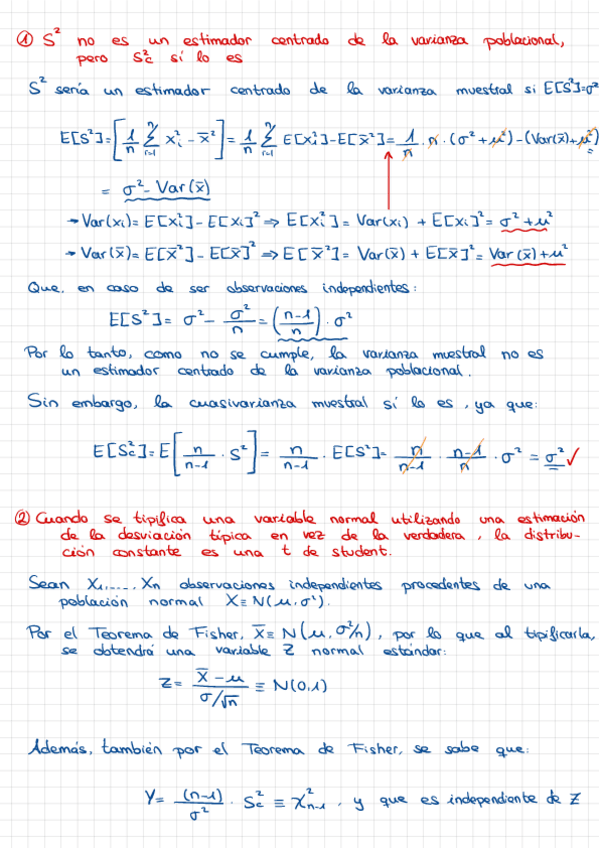 ① S² no es un estimador centrado de la varianza poblacional,
pero Sc² sí lo es
S² sería un estimador centrado de la varianza muestral si E[S²]=σ²
E[S²]=[1/n Σ_{i=1}^{n} xi² - x̄²] = 1/n Σ_{i=1}^{n} E[xi²]-E[x̄²] = 1/n · n · (σ²+μ²)-(Var(x̄)+μ²) =
= σ² - Var(x̄)
→ Var(xi) = E[xi²] - E[xi]² ⇒ E[xi²] = Var(xi) + E[xi]² = σ²+μ²
→ Var(x̄) = E[x̄²] - E[x̄]² ⇒ E[x̄²] = Var(x̄) + E[x̄]² = Var(x̄)+μ²
Que, en caso de ser observaciones independientes:
E[S²] = σ² - σ²/n = (n-1/n) · σ²
Por lo tanto, como no se cumple, la varianza muestral no es
un estimador centrado de la varianza poblacional.
Sin embargo, la cuasivarianza muestral sí lo es, ya que:
E[Sc²] = E[n/n-1 · S²] = n/n-1 · E[S²] = n/n-1 · n-1/n · σ² = σ² ✓
② Cuando se tipifica una variable normal utilizando una estimación
de la desviación típica en vez de la verdadera, la distribu-
ción constante es una t de student.
Sean X₁,..., Xn observaciones independientes procedentes de una
población normal X ≡ N(μ,σ²).
Por el Teorema de Fisher, X̄ ≡ N(μ, σ²/n), por lo que al tipificarla,
se obtendrá una variable Z normal estándar:
Z = X̄ - μ / σ/√n ≡ N(0,1)
Además, también por el Teorema de Fisher, se sabe que:
Y = (n-1)/σ² · Sc² ≡ χ²n-1, y que es independiente de Z